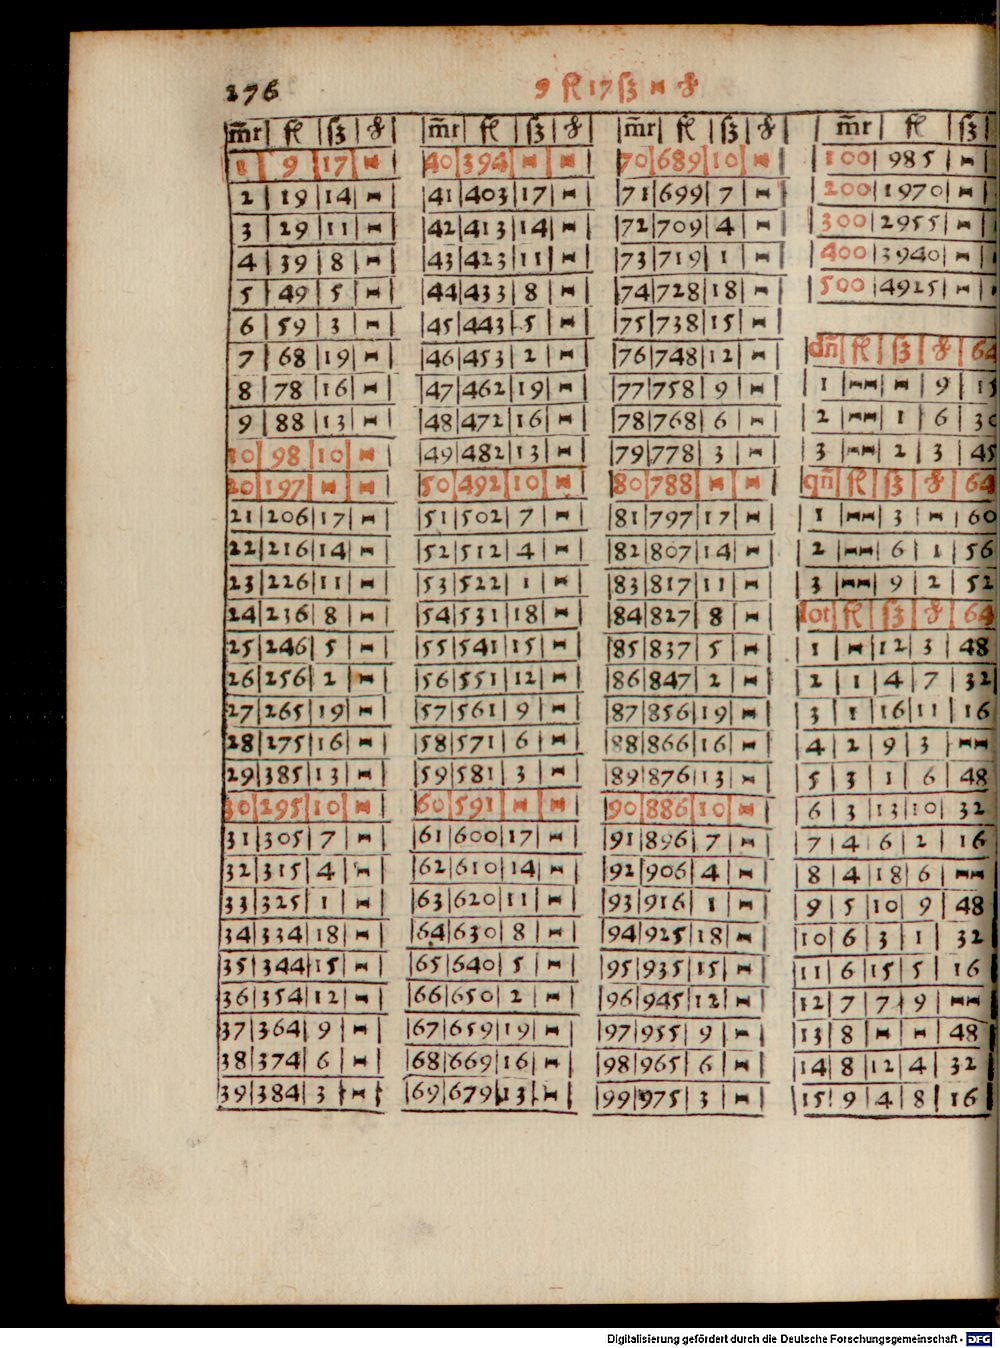 276
9 fl 17 ß ⑊ ₰
m̃r | fl | ß | ₰
1 | 9 | 17 | -
2 | 19 | 14 | -
3 | 29 | 11 | -
4 | 39 | 8 | -
5 | 49 | 5 | -
6 | 59 | 3 | -
7 | 68 | 19 | -
8 | 78 | 16 | -
9 | 88 | 13 | -
10 | 98 | 10 | -
20 | 197 | - | -
21 | 206 | 17 | -
22 | 216 | 14 | -
23 | 226 | 11 | -
24 | 236 | 8 | -
25 | 246 | 5 | -
26 | 256 | 2 | -
27 | 265 | 19 | -
28 | 275 | 16 | -
29 | 385 | 13 | -
30 | 295 | 10 | -
31 | 305 | 7 | -
32 | 315 | 4 | -
33 | 325 | 1 | -
34 | 334 | 18 | -
35 | 344 | 15 | -
36 | 354 | 12 | -
37 | 364 | 9 | -
38 | 374 | 6 | -
39 | 384 | 3 | -
m̃r | fl | ß | ₰
40 | 394 | - | -
41 | 403 | 17 | -
42 | 413 | 14 | -
43 | 423 | 11 | -
44 | 433 | 8 | -
45 | 443 | 5 | -
46 | 453 | 2 | -
47 | 462 | 19 | -
48 | 472 | 16 | -
49 | 482 | 13 | -
50 | 492 | 10 | -
51 | 502 | 7 | -
52 | 512 | 4 | -
53 | 522 | 1 | -
54 | 531 | 18 | -
55 | 541 | 15 | -
56 | 551 | 12 | -
57 | 561 | 9 | -
58 | 571 | 6 | -
59 | 581 | 3 | -
60 | 591 | - | -
61 | 600 | 17 | -
62 | 610 | 14 | -
63 | 620 | 11 | -
64 | 630 | 8 | -
65 | 640 | 5 | -
66 | 650 | 2 | -
67 | 659 | 19 | -
68 | 669 | 16 | -
69 | 679 | 13 | -
m̃r | fl | ß | ₰
70 | 689 | 10 | -
71 | 699 | 7 | -
72 | 709 | 4 | -
73 | 719 | 1 | -
74 | 728 | 18 | -
75 | 738 | 15 | -
76 | 748 | 12 | -
77 | 758 | 9 | -
78 | 768 | 6 | -
79 | 778 | 3 | -
80 | 788 | - | -
81 | 797 | 17 | -
82 | 807 | 14 | -
83 | 817 | 11 | -
84 | 827 | 8 | -
85 | 837 | 5 | -
86 | 847 | 2 | -
87 | 856 | 19 | -
88 | 866 | 16 | -
89 | 876 | 13 | -
90 | 886 | 10 | -
91 | 896 | 7 | -
92 | 906 | 4 | -
93 | 916 | 1 | -
94 | 925 | 18 | -
95 | 935 | 15 | -
96 | 945 | 12 | -
97 | 955 | 9 | -
98 | 965 | 6 | -
99 | 975 | 3 | -
m̃r | fl | ß
100 | 985 | -
200 | 1970 | -
300 | 2955 | -
400 | 3940 | -
500 | 4925 | -
dñ | fl | ß | ₰ | 64
1 | -- | - | 9 | 15
2 | -- | 1 | 6 | 30
3 | -- | 2 | 3 | 45
qñ | fl | ß | ₰ | 64
1 | -- | 3 | - | 60
2 | -- | 6 | 1 | 56
3 | -- | 9 | 2 | 52
lot | fl | ß | ₰ | 64
1 | - | 12 | 3 | 48
2 | 1 | 4 | 7 | 32
3 | 1 | 16 | 11 | 16
4 | 2 | 9 | 3 | --
5 | 3 | 1 | 6 | 48
6 | 3 | 13 | 10 | 32
7 | 4 | 6 | 2 | 16
8 | 4 | 18 | 6 | --
9 | 5 | 10 | 9 | 48
10 | 6 | 3 | 1 | 32
11 | 6 | 15 | 5 | 16
12 | 7 | 7 | 9 | --
13 | 8 | - | - | 48
14 | 8 | 12 | 4 | 32
15 | 9 | 4 | 8 | 16
Digitalisierung gefördert durch die Deutsche Forschungsgemeinschaft - DFG